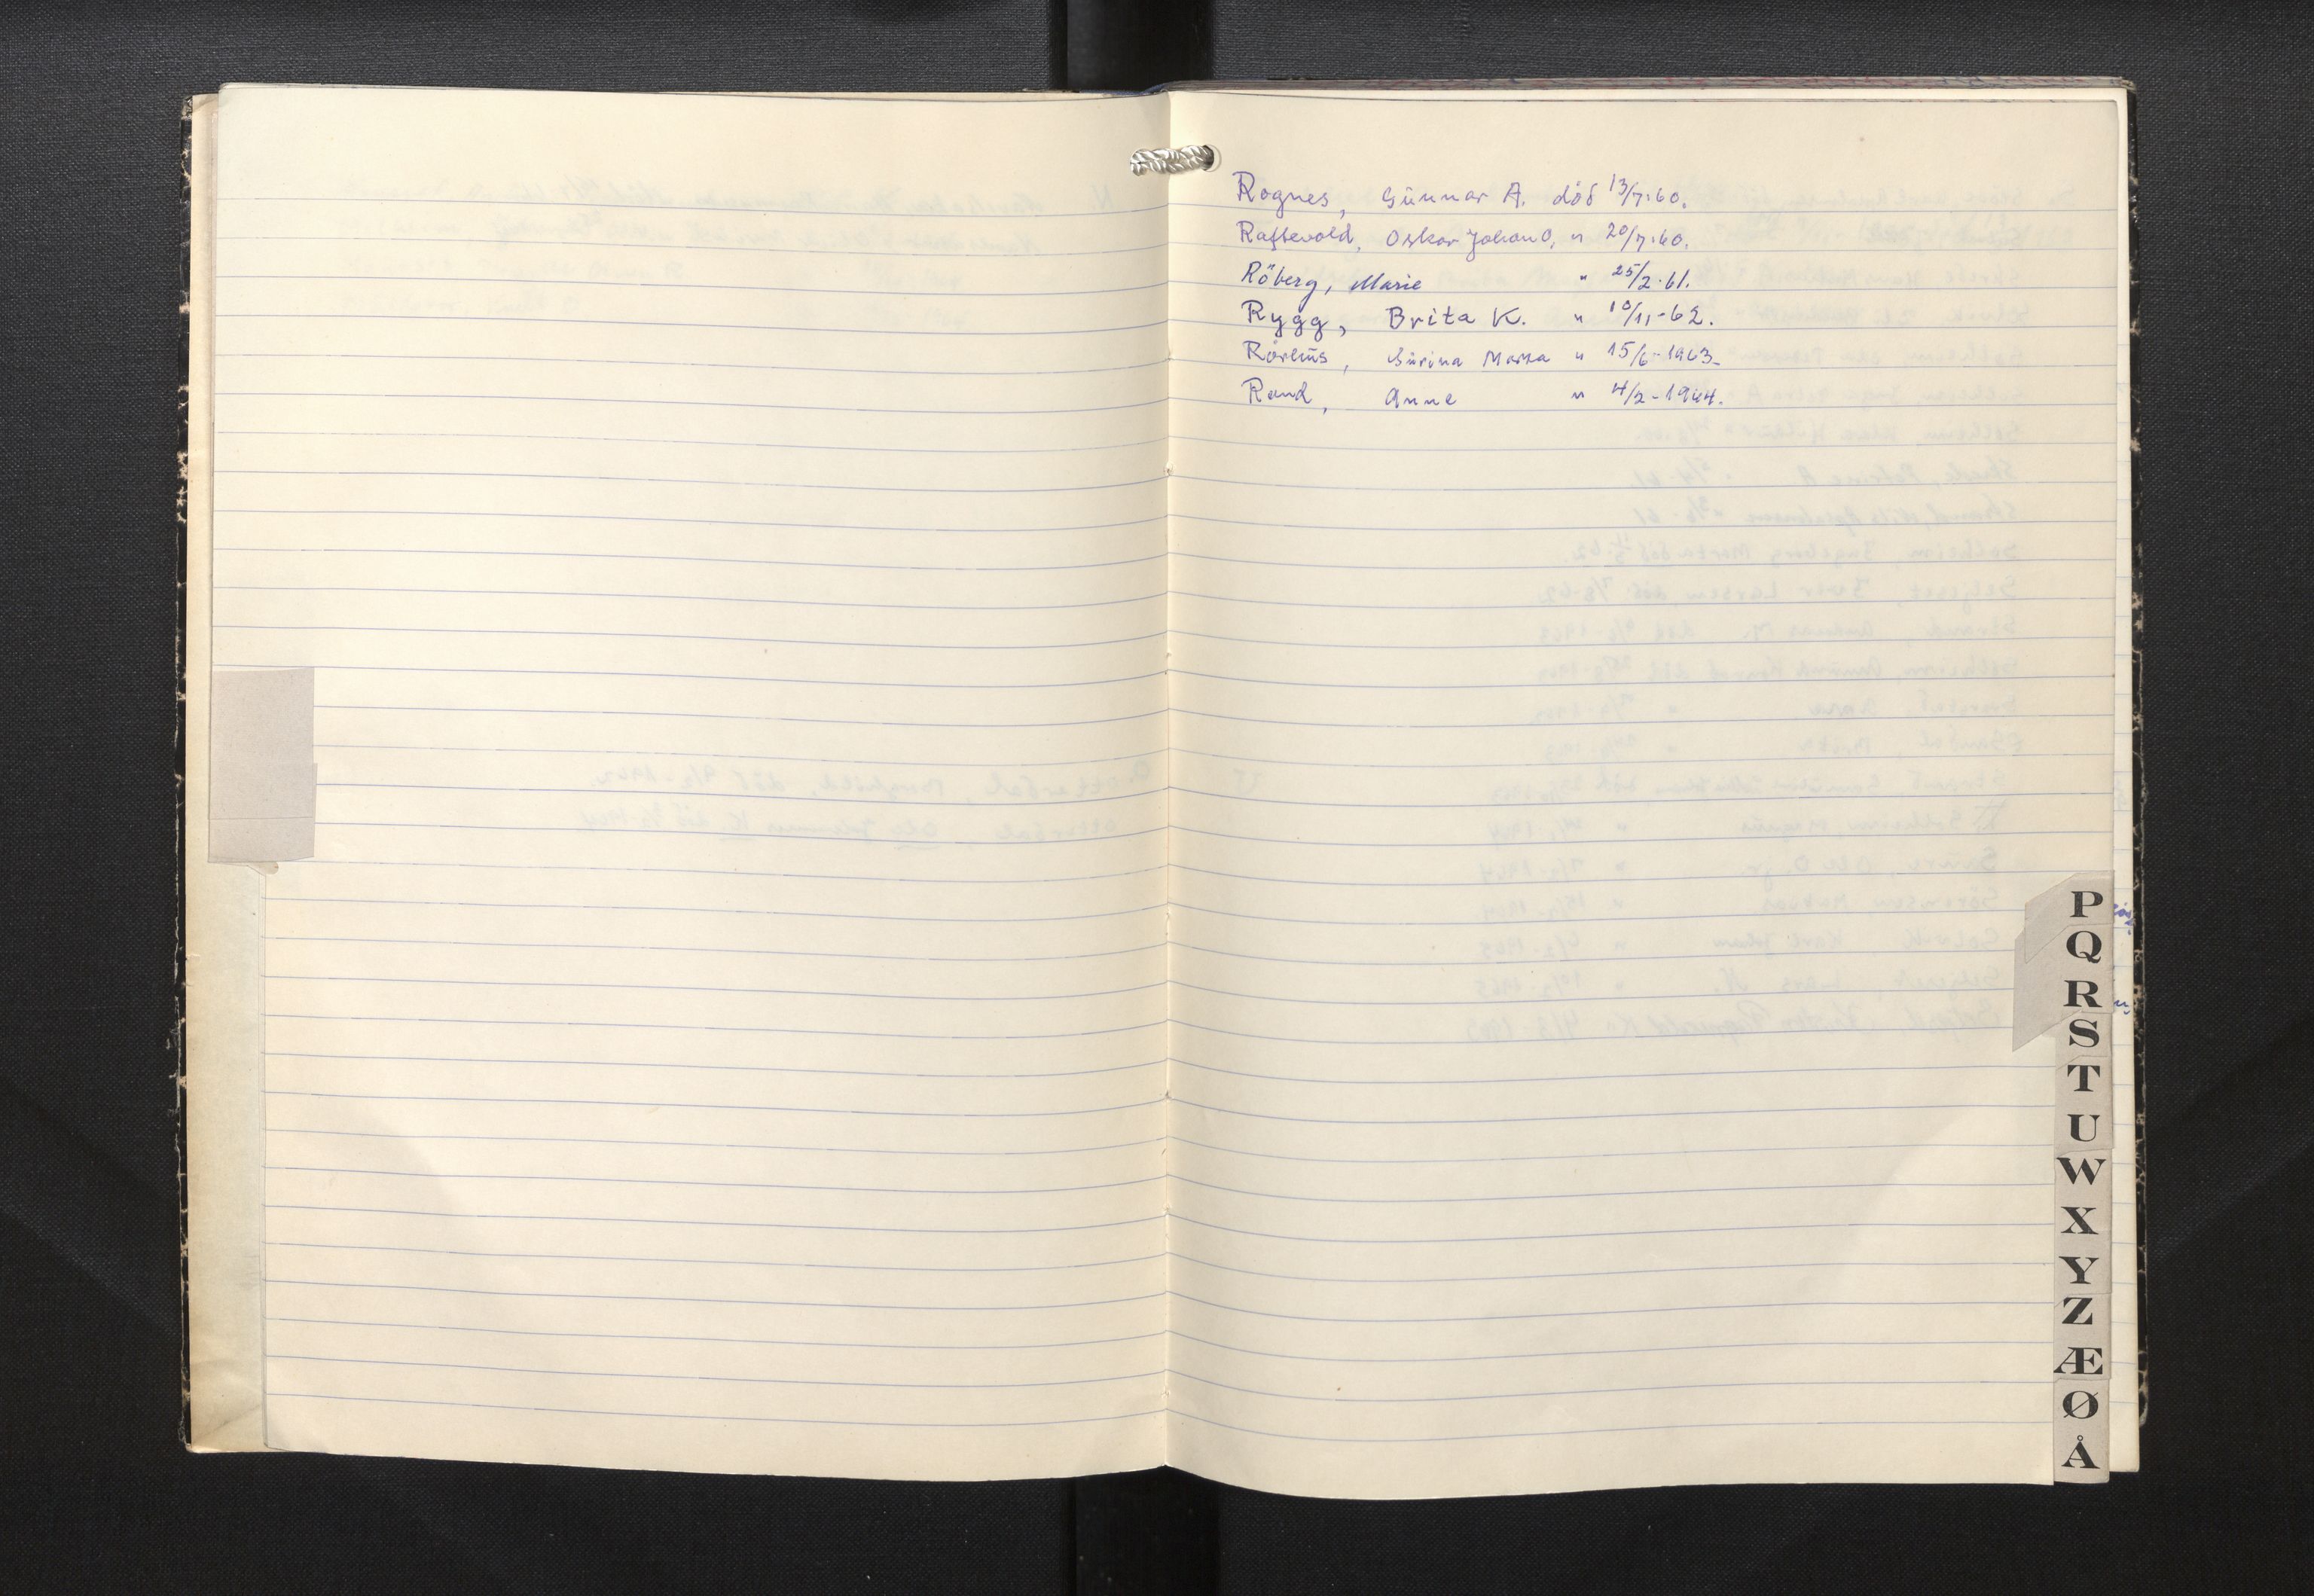 Rognes, Gunnar A. död 13/7-60.
Raftevold, Oskar Johan O, " 20/7-60.
Röberg, Marie " 25/2-61.
Rygg, Brita K. " 10/11-62.
Rörhus, Gurina Marta " 15/6-1963-
Rand, Anne " 4/2-1964.
P
Q
R
S
T
U
W
X
Y
Z
Æ
Ø
Å